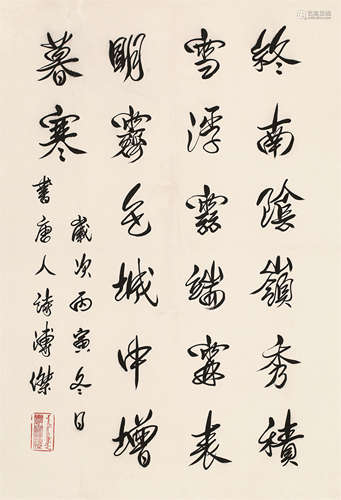 終南陰嶺秀積
雪浮雲端霽表
明霽色城中增
暮寒
歲次丙寅冬日
書唐人詩溥傑